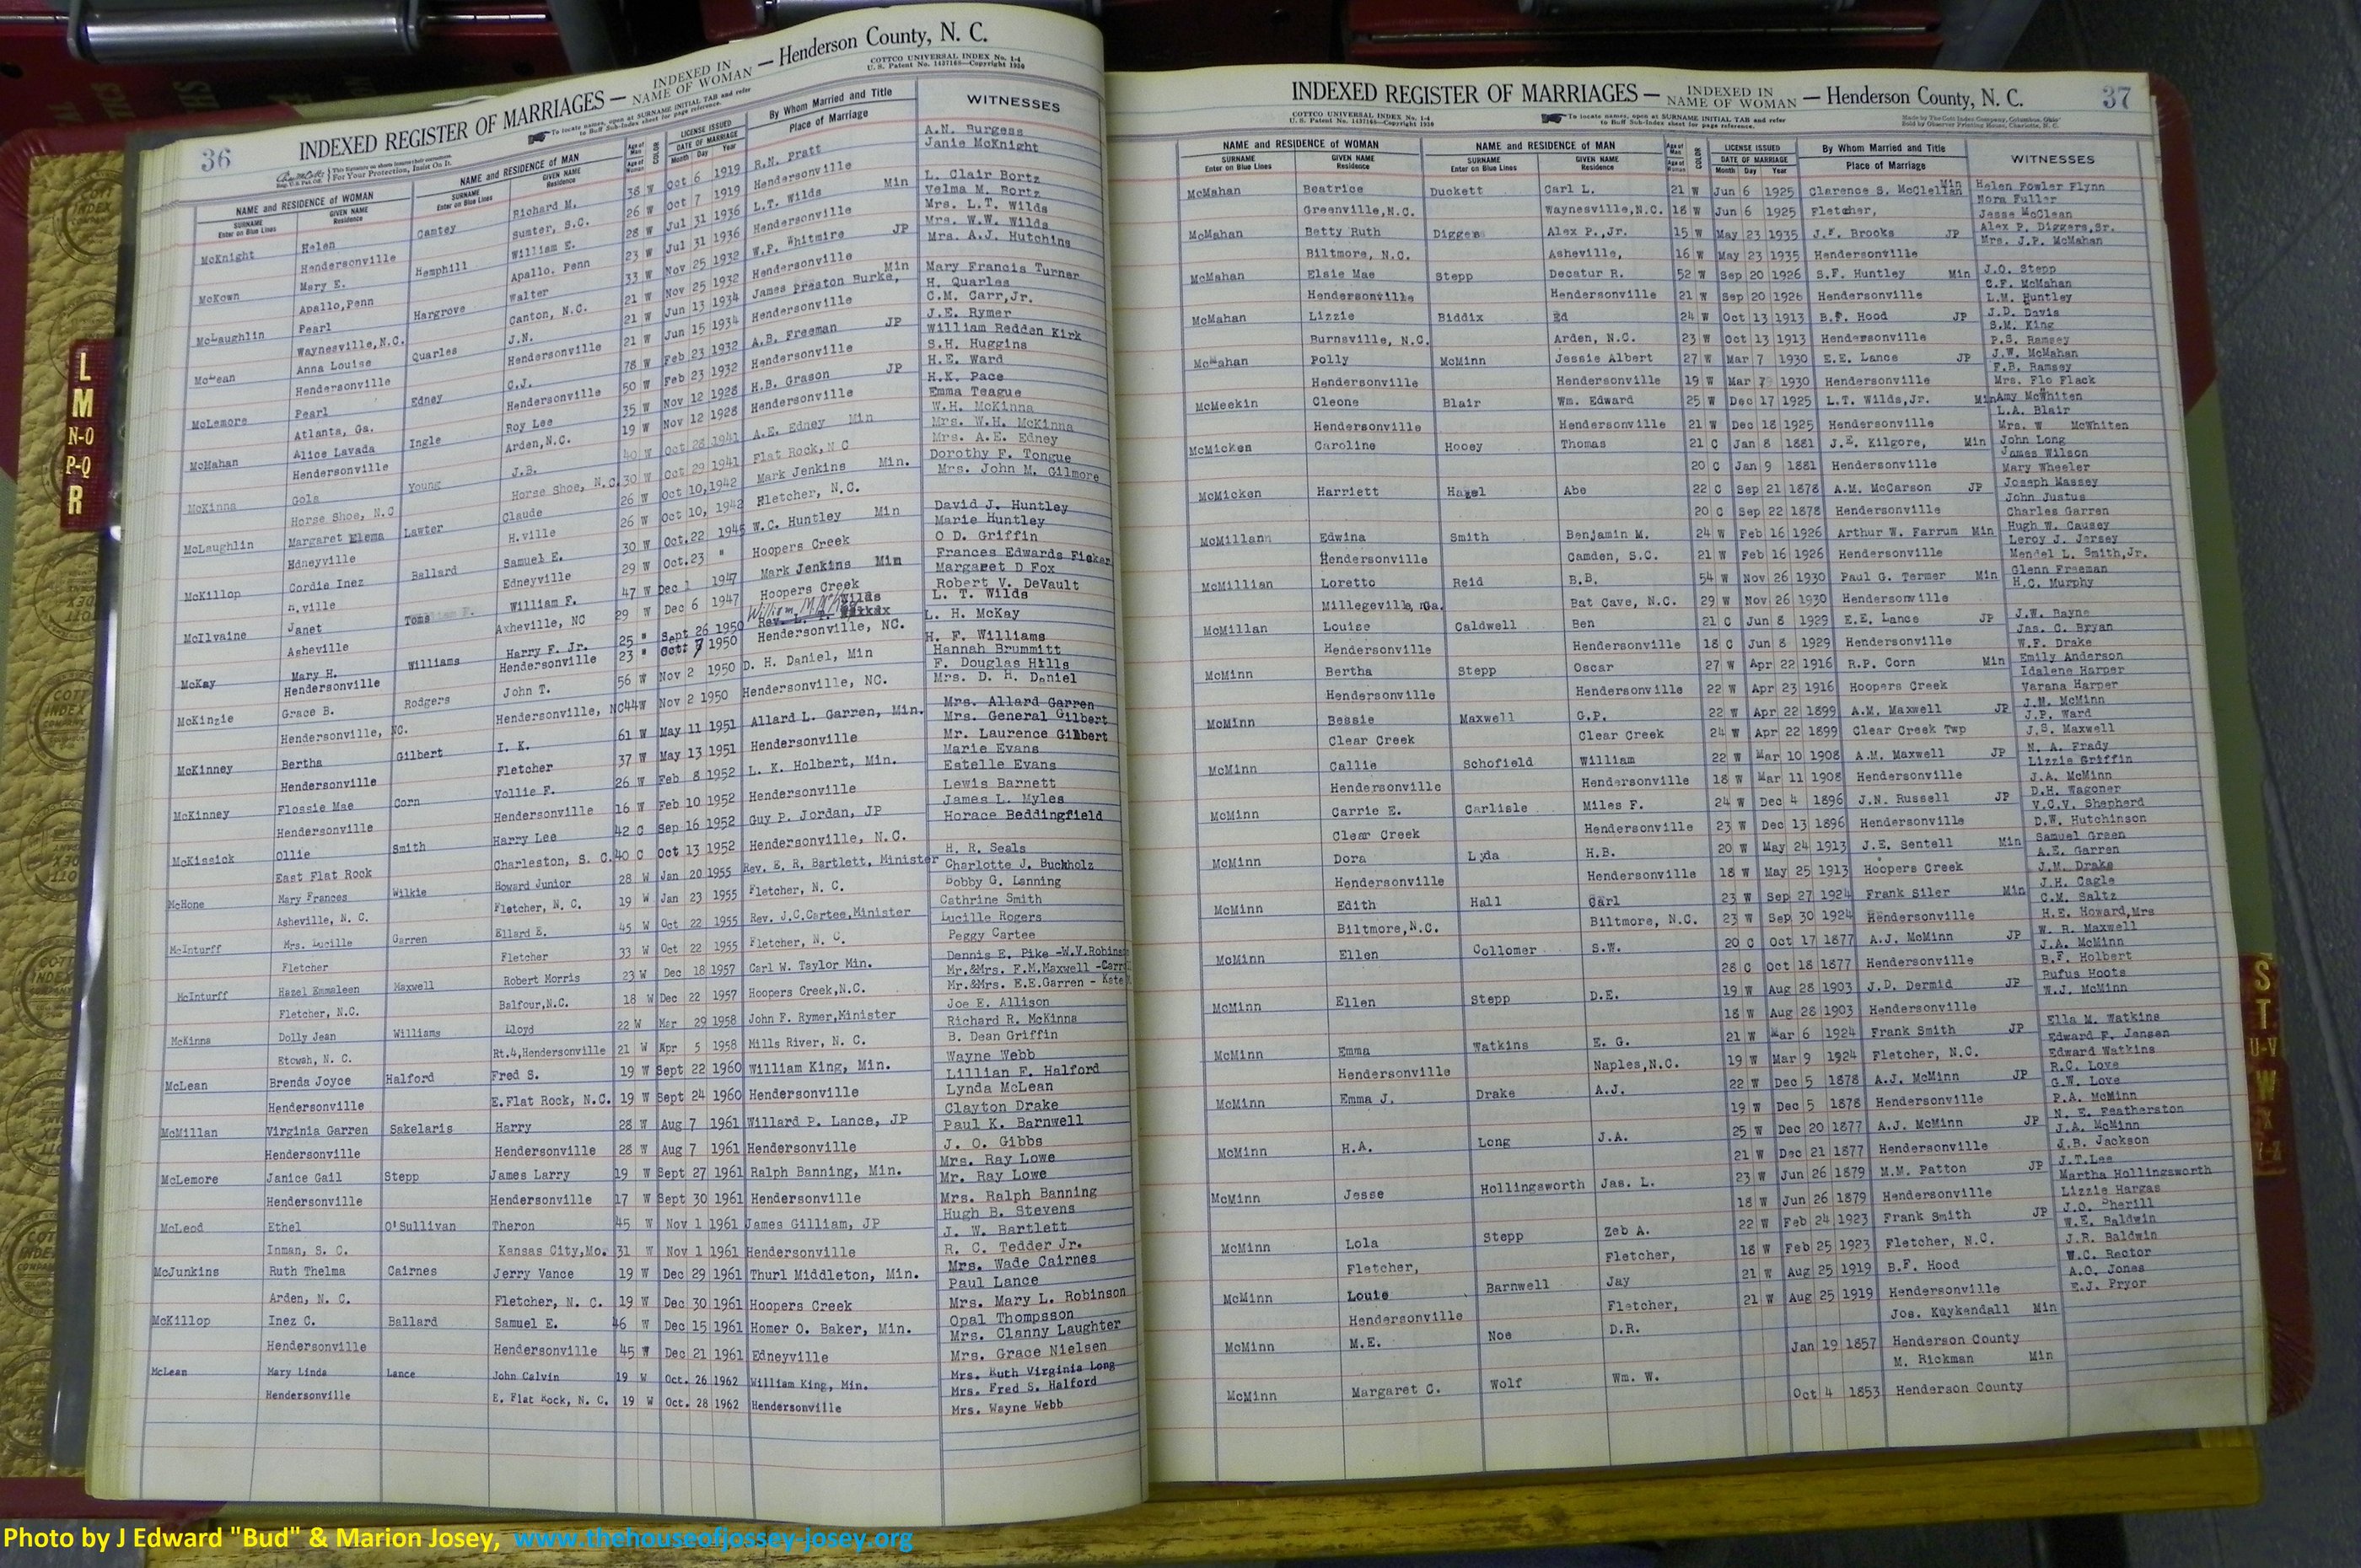 36
INDEXED REGISTER OF MARRIAGES — INDEXED IN NAME OF WOMAN — Henderson County, N. C.
COTTCO UNIVERSAL INDEX No. 1-4
U. S. Patent No. 1437168—Copyright 1950
To locate names, open at SURNAME INITIAL TAB and refer
to Buff Sub-Index sheet for page reference.
For Your Protection, Insist On It.
NAME and RESIDENCE OF WOMAN NAME and RESIDENCE OF MAN LICENSE ISSUED By Whom Married and Title WITNESSES
SURNAME Enter on Blue Lines GIVEN NAME Residence SURNAME Enter on Blue Lines GIVEN NAME Residence Age of Man Age of Woman COLOR DATE OF MARRIAGE Month Day Year Place of Marriage
McKnight Helen Camtey Richard M. 38 W Oct 6 1919 R.N. Pratt A.N. Burgess
Janie McKnight
Hendersonville Sumter, S.C. 26 W Oct 7 1919 Hendersonville
McKown Mary E. Hemphill William E. 28 W Jul 31 1936 L.T. Wilds Min L. Clair Bortz
Velma M. Bortz
Apallo,Penn Apallo. Penn 23 W Jul 31 1936 Hendersonville Mrs. L.T. Wilds
McLaughlin Pearl Hargrove Walter 33 W Nov 25 1932 W.F. Whitmire JP Mrs. W.W. Wilds
Mrs. A.J. Hutchins
Waynesville,N.C. Canton, N.C. 21 W Nov 25 1932 Hendersonville
McLean Anna Louise Quarles J.N. 21 W Jun 13 1934 James Preston Burke, Min Mary Francis Turner
H. Quarles
Hendersonville Hendersonville 21 W Jun 15 1934 Hendersonville C.M. Carr,Jr.
McLemore Pearl Edney C.J. 78 W Feb 23 1932 A.B. Freeman JP J.E. Rymer
William Redden Kirk
Atlanta, Ga. Hendersonville 50 W Feb 23 1932 Hendersonville S.H. Huggins
McMahan Alice Lavada Ingle Roy Lee 35 W Nov 12 1928 H.B. Grason JP H.E. Ward
H.K. Pace
Hendersonville Arden,N.C. 19 W Nov 12 1928 Hendersonville Emma Teague
McKinna Gola Young J.B. 40 W Oct 28 1941 A.E. Edney Min W.H. McKinna
Mrs. W.H. McKinna
Horse Shoe, N.C Horse Shoe, N.C. 30 W Oct 29 1941 Flat Rock,N.C Mrs. A.E. Edney
McLaughlin Margaret Elema Lawter Claude 26 W Oct 10,1942 Mark Jenkins Min. Dorothy F. Tongue
Mrs. John M. Gilmore
Edneyville H.ville 26 W Oct 10, 1942 Fletcher, N.C.
McKillop Cordie Inez Ballard Samuel E. 30 W Oct.22 1945 W.C. Huntley Min David J. Huntley
Marie Huntley
H.ville Edneyville 29 W Oct.23 " Hoopers Creek O D. Griffin
McIlvaine Janet Toms William F. 47 W Dec 1 1947 Mark Jenkins Min Frances Edwards Ficker
Margaret D Fox
Asheville Axheville, NC 29 W Dec 6 1947 Hoopers Creek Robert V. DeVault
McKay Mary H. Williams Harry F. Jr. 25 " Sept 26 1950 L. T. Wilds
Hendersonville Hendersonville 23 " Oct 7 1950 Hendersonville, NC. L. H. McKay
McKinzie Grace B. Rodgers John T. 56 W Nov 2 1950 D. H. Daniel, Min H. F. Williams
Hannah Brummitt
F. Douglas Hills
Hendersonville, NC. Hendersonville, NC 44 W Nov 2 1950 Hendersonville, NC. Mrs. D. H. Daniel
McKinney Bertha Gilbert I. K. 61 W May 11 1951 Allard L. Garren, Min. Mrs. Allard Garren
Mrs. General Gilbert
Hendersonville Fletcher 37 W May 13 1951 Hendersonville Mr. Laurence Gilbert
McKinney Flossie Mae Corn Vollie F. 26 W Feb 8 1952 L. K. Holbert, Min. Marie Evans
Estelle Evans
Hendersonville Hendersonville 16 W Feb 10 1952 Hendersonville Lewis Barnett
McKissick Ollie Smith Harry Lee 42 C Sep 16 1952 Guy P. Jordan, JP James L. Myles
Horace Beddingfield
East Flat Rock Charleston, S. C. 40 C Oct 13 1952 Hendersonville, N.C.
McHone Mary Frances Wilkie Howard Junior 28 W Jan 20 1955 Rev. E. R. Bartlett, Minister H. R. Seals
Charlotte J. Buchholz
Asheville, N. C. Fletcher, N. C. 19 W Jan 23 1955 Fletcher, N. C. Bobby G. Lanning
McInturff Mrs. Lucille Garren Ellard E. 45 W Oct 22 1955 Rev. J.C.Cartee,Minister Cathrine Smith
Lucille Rogers
Fletcher Fletcher 33 W Oct 22 1955 Fletcher, N. C. Peggy Cartee
McInturff Hazel Emmaleen Maxwell Robert Morris 23 W Dec 18 1957 Carl W. Taylor Min. Dennis E. Pike -W.V.Robinson
Mr.&Mrs. F.M.Maxwell -Carr
Fletcher, N.C. Balfour,N.C. 18 W Dec 22 1957 Hoopers Creek,N.C. Mr.&Mrs. E.E.Garren - Kate
McKinna Dolly Jean Williams Lloyd 22 W Mar 29 1958 John F. Rymer,Minister Joe E. Allison
Richard R. McKinna
Etowah, N. C. Rt.4,Hendersonville 21 W Apr 5 1958 Mills River, N. C. B. Dean Griffin
McLean Brenda Joyce Halford Fred S. 19 W Sept 22 1960 William King, Min. Wayne Webb
Lillian F. Halford
Hendersonville E.Flat Rock, N.C. 19 W Sept 24 1960 Hendersonville Lynda McLean
McMillan Virginia Garren Sakelaris Harry 28 W Aug 7 1961 Willard P. Lance, JP Clayton Drake
Paul K. Barnwell
Hendersonville Hendersonville 28 W Aug 7 1961 Hendersonville J. O. Gibbs
McLemore Janice Gail Stepp James Larry 19 W Sept 27 1961 Ralph Banning, Min. Mrs. Ray Lowe
Mr. Ray Lowe
Hendersonville Hendersonville 17 W Sept 30 1961 Hendersonville Mrs. Ralph Banning
McLeod Ethel O'Sullivan Theron 45 W Nov 1 1961 James Gilliam, JP Hugh B. Stevens
J. W. Bartlett
Inman, S. C. Kansas City,Mo. 31 W Nov 1 1961 Hendersonville R. C. Tedder Jr.
McJunkins Ruth Thelma Cairnes Jerry Vance 19 W Dec 29 1961 Thurl Middleton, Min. Mrs. Wade Cairnes
Paul Lance
Arden, N. C. Fletcher, N. C. 19 W Dec 30 1961 Hoopers Creek Mrs. Mary L. Robinson
McKillop Inez C. Ballard Samuel E. 46 W Dec 15 1961 Homer O. Baker, Min. Opal Thompsson
Mrs. Clanny Laughter
Hendersonville Hendersonville 45 W Dec 21 1961 Edneyville Mrs. Grace Nielsen
McLean Mary Linda Lance John Calvin 19 W Oct. 26 1962 William King, Min. Mrs. Ruth Virginia Long
Mrs. Fred S. Halford
Hendersonville E. Flat Rock, N. C. 19 W Oct. 28 1962 Hendersonville Mrs. Wayne Webb
37
INDEXED REGISTER OF MARRIAGES — INDEXED IN NAME OF WOMAN — Henderson County, N. C.
COTTCO UNIVERSAL INDEX No. 1-4
U. S. Patent No. 1437168—Copyright 1950
To locate names, open at SURNAME INITIAL TAB and refer
to Buff Sub-Index sheet for page reference.
Made by The Cott Index Company, Columbus, Ohio
Sold by Observer Printing House, Charlotte, N. C.
NAME and RESIDENCE OF WOMAN NAME and RESIDENCE OF MAN LICENSE ISSUED By Whom Married and Title WITNESSES
SURNAME Enter on Blue Lines GIVEN NAME Residence SURNAME Enter on Blue Lines GIVEN NAME Residence Age of Man Age of Woman COLOR DATE OF MARRIAGE Month Day Year Place of Marriage
McMahan Beatrice Duckett Carl L. 21 W Jun 6 1925 Clarence S. McClellan Min Helen Fowler Flynn
Nora Fuller
Greenville,N.C. Waynesville,N.C. 18 W Jun 6 1925 Fletcher, Jesse McClean
McMahan Betty Ruth Diggers Alex P.,Jr. 15 W May 23 1935 J.F. Brooks JP Alex P. Diggers,Sr.
Mrs. J.P. McMahan
Biltmore, N.C. Asheville, 16 W May 23 1935 Hendersonville
McMahan Elsie Mae Stepp Decatur R. 52 W Sep 20 1926 S.F. Huntley Min J.O. Stepp
C.F. McMahan
Hendersonville Hendersonville 21 W Sep 20 1926 Hendersonville L.M. Huntley
McMahan Lizzie Biddix Ed 24 W Oct 13 1913 B.F. Hood JP J.D. Davis
S.M. King
Burnsville, N.C. Arden, N.C. 23 W Oct 13 1913 Hendersonville P.S. Ramsey
McMahan Polly McMinn Jessie Albert 27 W Mar 7 1930 E.E. Lance JP J.W. McMahan
F.B. Ramsey
Hendersonville Hendersonville 19 W Mar 7 1930 Hendersonville Mrs. Flo Flack
McMeekin Cleone Blair Wm. Edward 25 W Dec 17 1925 L.T. Wilds,Jr. Min Amy McWhiten
L.A. Blair
Hendersonville Hendersonville 21 W Dec 18 1925 Hendersonville Mrs. W McWhiten
McMicken Caroline Hooey Thomas 21 C Jan 8 1881 J.E. Kilgore, Min John Long
James Wilson
20 C Jan 9 1881 Hendersonville Mary Wheeler
McMicken Harriett Hazel Abe 22 C Sep 21 1878 A.M. McCarson JP Joseph Massey
John Justus
20 C Sep 22 1878 Hendersonville Charles Garren
McMillann Edwina Smith Benjamin M. 24 W Feb 16 1926 Arthur W. Farrum Min Hugh W. Causey
Leroy J. Jersey
Hendersonville Camden, S.C. 21 W Feb 16 1926 Hendersonville Mendel L. Smith,Jr.
McMillian Loretto Reid B.B. 54 W Nov 26 1930 Paul G. Termer Min Glenn Freeman
H.C. Murphy
Millegeville, Ga. Bat Cave, N.C. 29 W Nov 26 1930 Hendersonville
McMillan Louise Caldwell Ben 21 C Jun 8 1929 E.E. Lance JP J.W. Bayne
Jas. C. Bryan
Hendersonville Hendersonville 18 C Jun 8 1929 Hendersonville W.F. Drake
McMinn Bertha Stepp Oscar 27 W Apr 22 1916 R.P. Corn Min Emily Anderson
Idalene Harper
Hendersonville Hendersonville 22 W Apr 23 1916 Hoopers Creek Varana Harper
McMinn Bessie Maxwell G.P. 22 W Apr 22 1899 A.M. Maxwell JP J.M. McMinn
J.P. Ward
Clear Creek Clear Creek 24 W Apr 22 1899 Clear Creek Twp J.S. Maxwell
McMinn Callie Schofield William 22 W Mar 10 1908 A.M. Maxwell JP N. A. Frady
Lizzie Griffin
Hendersonville Hendersonville 18 W Mar 11 1908 Hendersonville J.A. McMinn
McMinn Carrie E. Carlisle Miles F. 24 W Dec 4 1896 J.N. Russell JP D.H. Wagoner
V.C.V. Shepherd
Clear Creek Hendersonville 23 W Dec 13 1896 Hendersonville D.W. Hutchinson
McMinn Dora Lyda H.B. 20 W May 24 1913 J.E. Sentell Min Samuel Green
A.E. Garren
Hendersonville Hendersonville 18 W May 25 1913 Hoopers Creek J.M. Drake
McMinn Edith Hall Carl 23 W Sep 27 1924 Frank Siler Min J.H. Cagle
C.M. Saltz
Biltmore,N.C. Biltmore, N.C. 23 W Sep 30 1924 Hendersonville H.E. Howard,Mrs
McMinn Ellen Collomer S.W. 20 C Oct 17 1877 A.J. McMinn JP W. R. Maxwell
J.A. McMinn
28 C Oct 18 1877 Hendersonville B.F. Holbert
McMinn Ellen Stepp D.E. 19 W Aug 28 1903 J.D. Dermid JP Rufus Hoots
W.J. McMinn
18 W Aug 28 1903 Hendersonville
McMinn Emma Watkins E. G. 21 W Mar 6 1924 Frank Smith JP Ella M. Watkins
Edward F. Jensen
Hendersonville Naples,N.C. 19 W Mar 9 1924 Fletcher, N.C. Edward Watkins
McMinn Emma J. Drake A.J. 22 W Dec 5 1878 A.J. McMinn JP R.C. Love
G.W. Love
19 W Dec 5 1878 Hendersonville P.A. McMinn
McMinn H.A. Long J.A. 25 W Dec 20 1877 A.J. McMinn JP N. E. Featherston
J.A. McMinn
21 W Dec 21 1877 Hendersonville J.B. Jackson
McMinn Jesse Hollingsworth Jas. L. 23 W Jun 26 1879 M.M. Patton JP J.T.Lee
Martha Hollingsworth
18 W Jun 26 1879 Hendersonville Lizzie Hargas
McMinn Lola Stepp Zeb A. 22 W Feb 24 1923 Frank Smith JP J.O. Sherill
W.E. Baldwin
Fletcher, Fletcher, 18 W Feb 25 1923 Fletcher, N.C. J.R. Baldwin
McMinn Louie Barnwell Jay 21 W Aug 25 1919 B.F. Hood W.C. Rector
A.O. Jones
Hendersonville Fletcher, 21 W Aug 25 1919 Hendersonville E.J. Pryor
McMinn M.E. Noe D.R. Jos. Kuykendall Min
Jan 19 1857 Henderson County
McMinn Margaret C. Wolf Wm. W. M. Rickman Min
Oct 4 1853 Henderson County
L
M
N-O
P-Q
R
S
T
U-V
W
X
Y-Z
Photo by J Edward "Bud" & Marion Josey, www.thehouseofjossey-josey.org